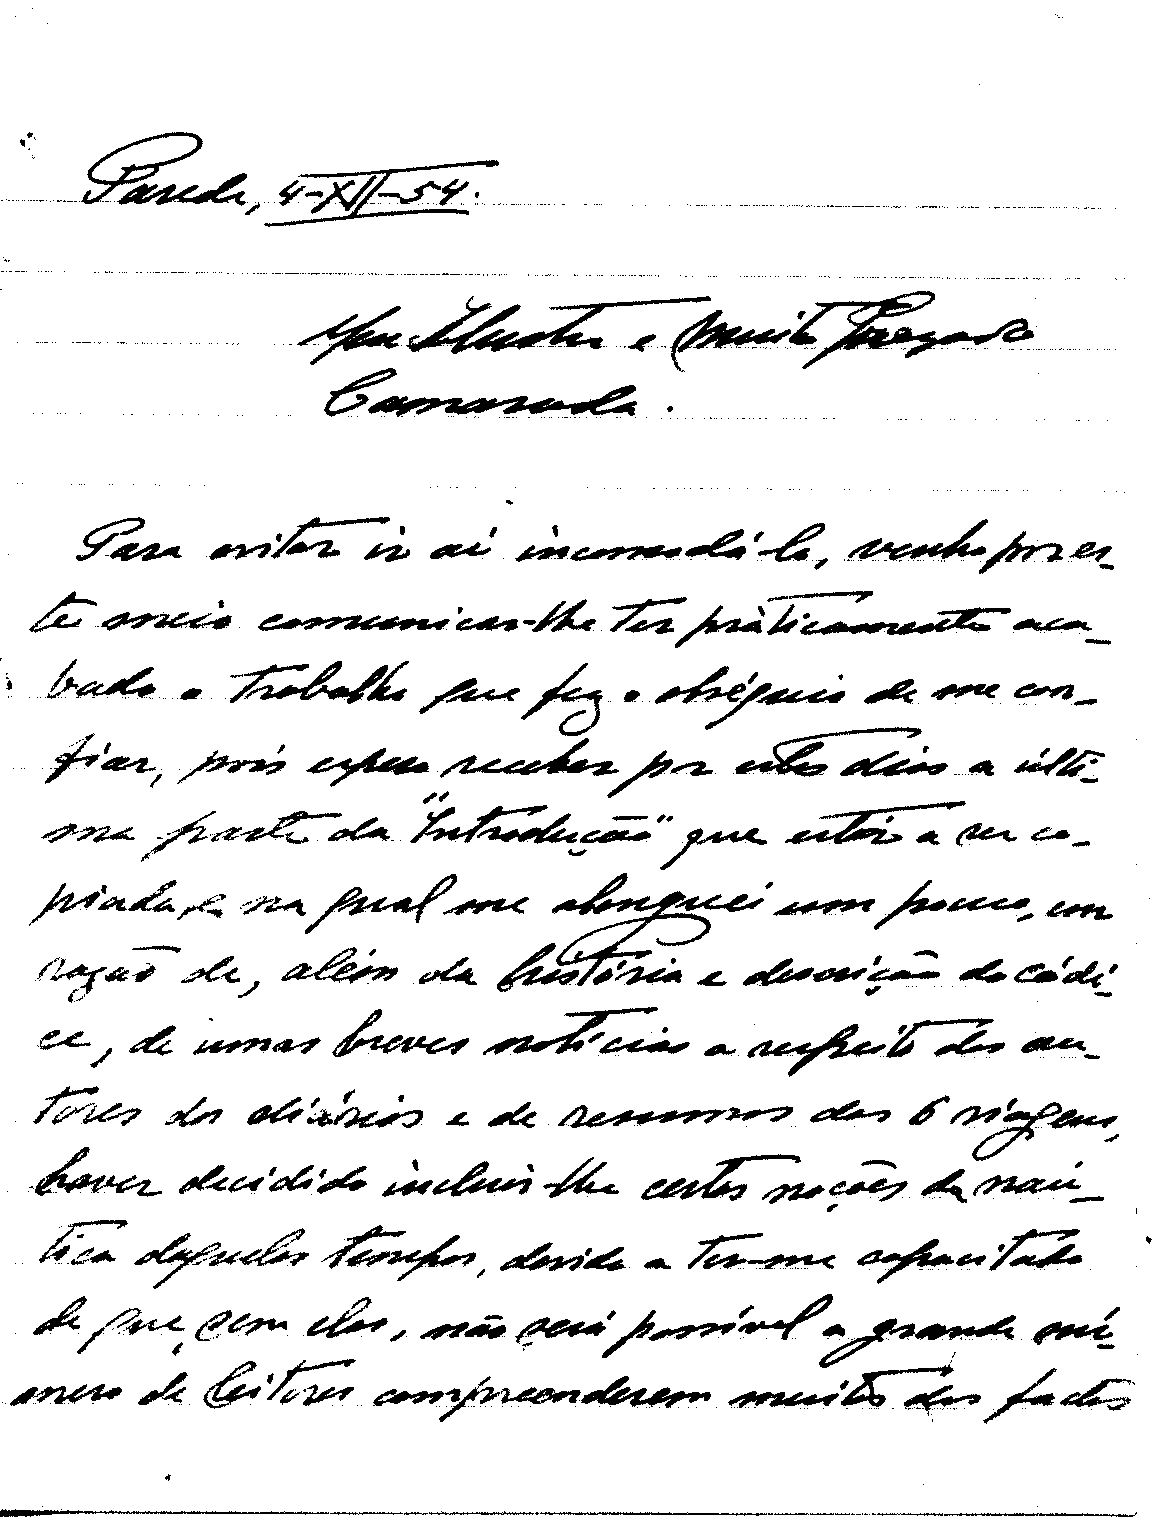 Parede, 4-XII-54.
Meu Illustre e Muito Prezado
Camarada.
Para evitar ir aí incomodá-lo, venho por es-
te meio comunicar-lhe ter pràticamente aca-
bado o trabalho que fez o obséquio de me con-
fiar, pois espero receber por estes dias a últi-
ma parte da "Introdução" que está a ser co-
piada, e na qual me alonguei um pouco, em
razão de, além da história e descrição do códi-
ce, de umas breves notícias a respeito dos au-
tores dos diários e de resumos das 6 viagens,
haver decidido incluir-lhe certas noções da náu-
tica daqueles tempos, devido a ter-me capacitado
de que, sem elas, não será possível a grande nú-
mero de leitores compreenderem muitos dos factos